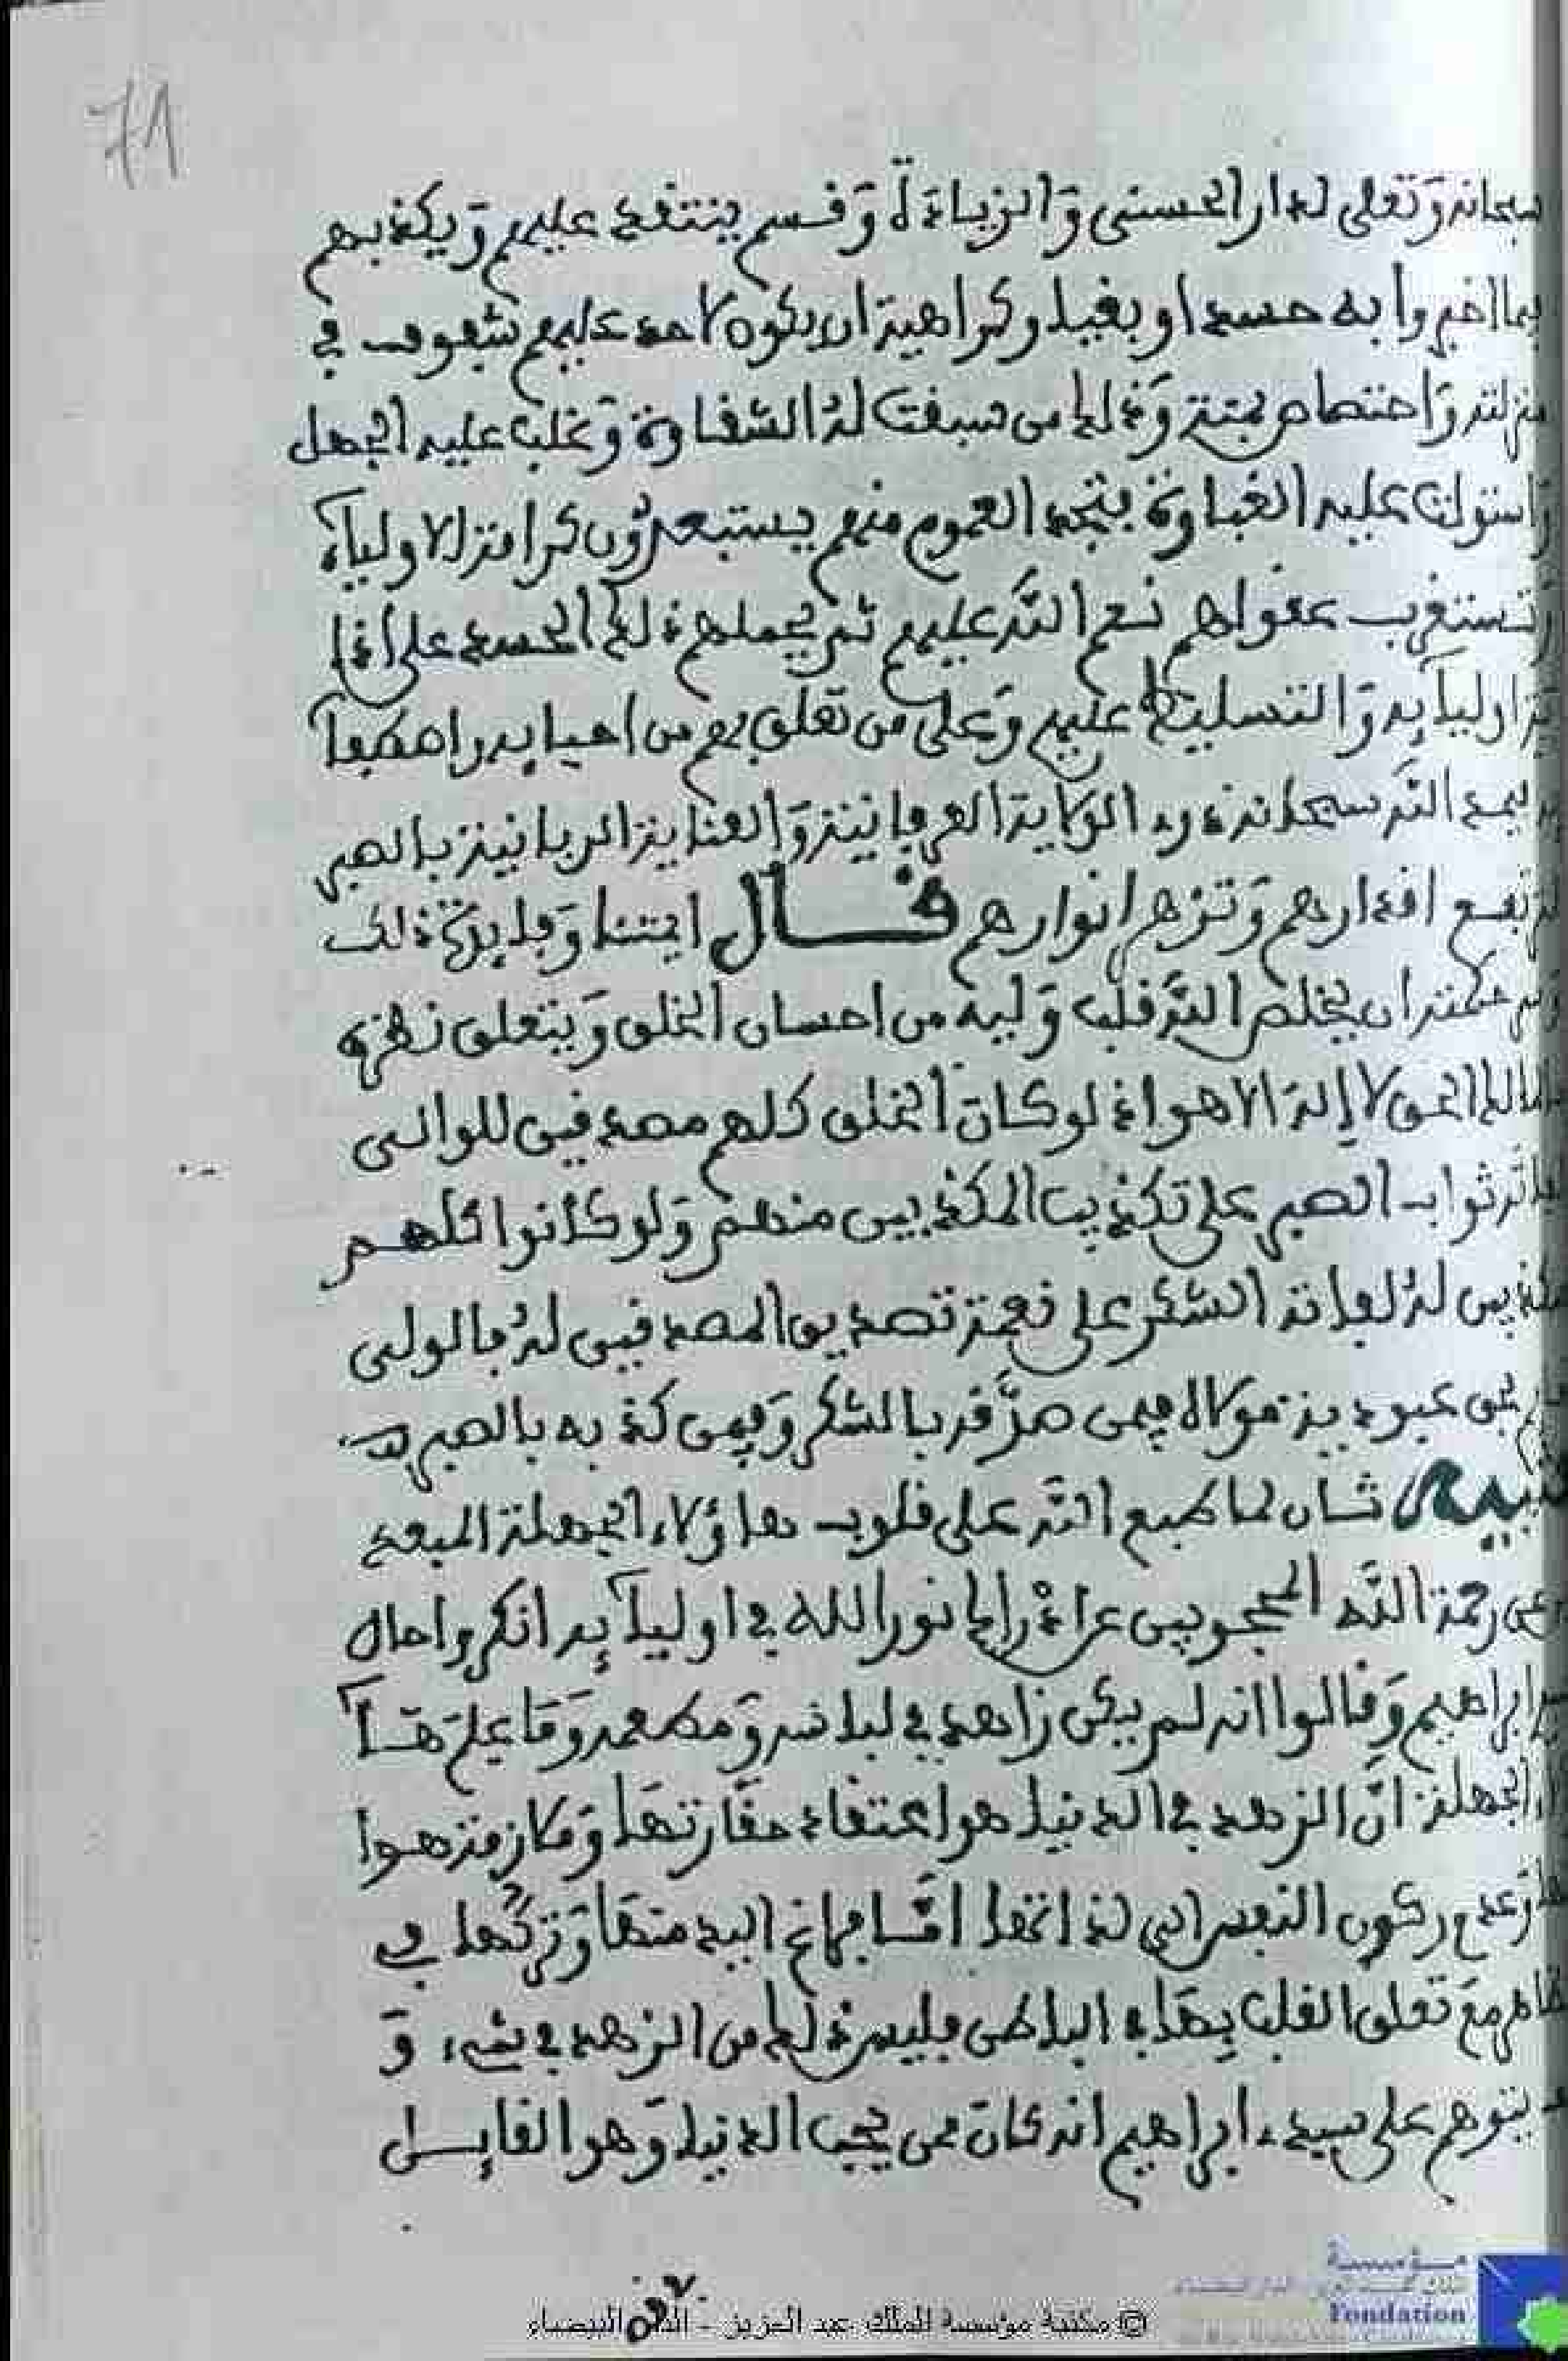 71
سبحانه وَتعلى لدار الحسنى وَالزيادَة وَفسم ينتفد عليهم وَيكذبهم
بما اخبروا به حسدا وبغيا وكراهية ان يكون لاحد عليهم شفوف في
منزلته وَاختصاص بمنة وَذالك من سبقت لهُ الشقاوة وَغلب عليه الجهل
وَاستولت عليه الغباوة فتجد العموم منهم يستبعدون كرامة الاولياء
وتستغرب عقولهم نعم الله عليهم ثم يحملهم ذلك الحسد على اذا
اوليآئه وَالتسليط عليهم وَعلى من تعلق بهم من احبابه واصفيآ
الله سبحانه الولاية العرفانية وَالعناية الربانية بالصبر
اقدارهم وَتزهر انوارهم قال ايمتنا وَفايدة ذلك
حكمته ان يخلص الله قلب وَليه من احسان الخلق وَيتعلق نظره
الملك الحق لا إله الا هو اذ لو كان الخلق كلهم مصدفين للوالى
ثواب الصبر على تكذيب المكذبين منهم وَلو كانوا كلهم
لهُ لفاته الشكر على نعمة تصديق المصدفين لهُ فالولى
بحق عبودية مولاه فيمن صدَّقه بالشكر وَفيمن كذبه بالصبر
شان لما طبع الله على فلوب هاؤلاء الجهلة المبعد
عن رحمة الله المحجوبين عن ادراك نور الله في اوليآئه انكروا حال
ابراهيم وَقالوا انه لم يكن زاهد في لباسه وَمطعمه وَما علم هآ
الجهلة انَّ الزهد في الدنيا هو اعتقاد حقارتها وَمكان
عدم ركون النفس الى لذاتها امَّا فراغ اليد منها وَتركها في
مع تعلق القلب بها في الباطن فليس ذلك من الزهد في شيء وَ
على سيد ابراهيم انه كان ممن يحب الدنيا وَهو القايل
مؤسسة
Fondation
© مكتبة مؤسسة الملك عبد العزيز - الدار البيضاء